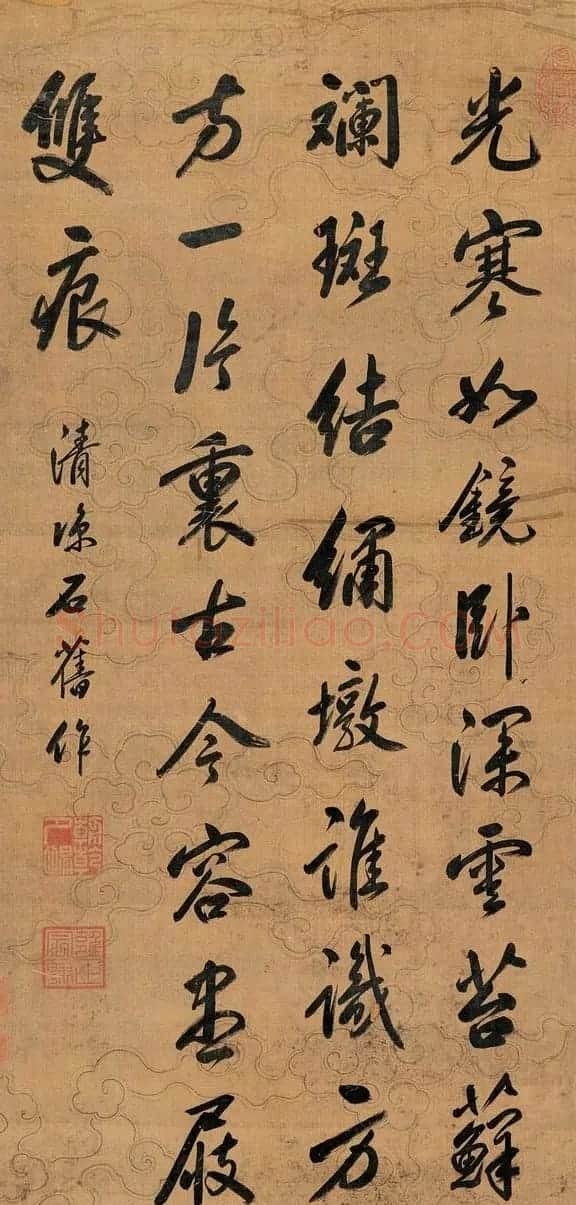 光寒如鏡卧深雲苔蘚
斕斑結繡墩誰識方
方一片裏古今容盡屐
雙痕
清涼石舊作
Shufaziliao.COM